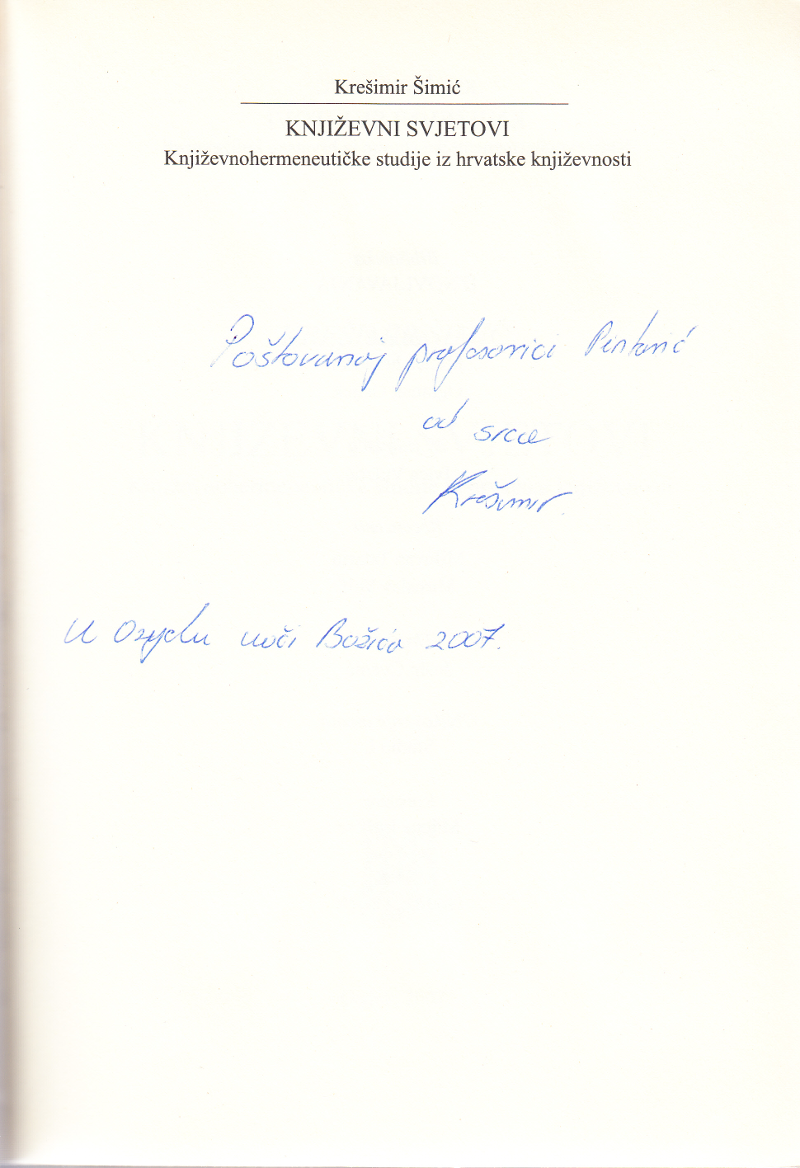 Krešimir Šimić
KNJIŽEVNI SVJETOVI
Književnohermeneutičke studije iz hrvatske književnosti
Poštovanoj profesorici Pintarić
od srca
Krešimir
U Osijeku uoči Božića 2007.